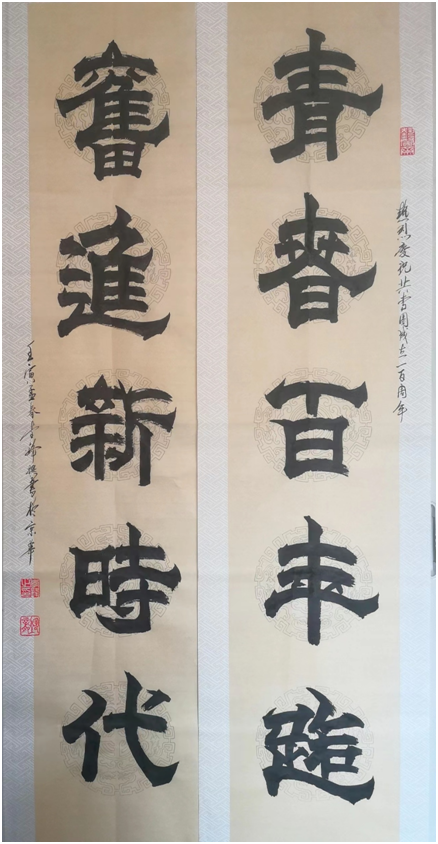 熱烈慶祝共青团成立一百周年
青春百年路
奮進新時代
壬寅孟春書於京華